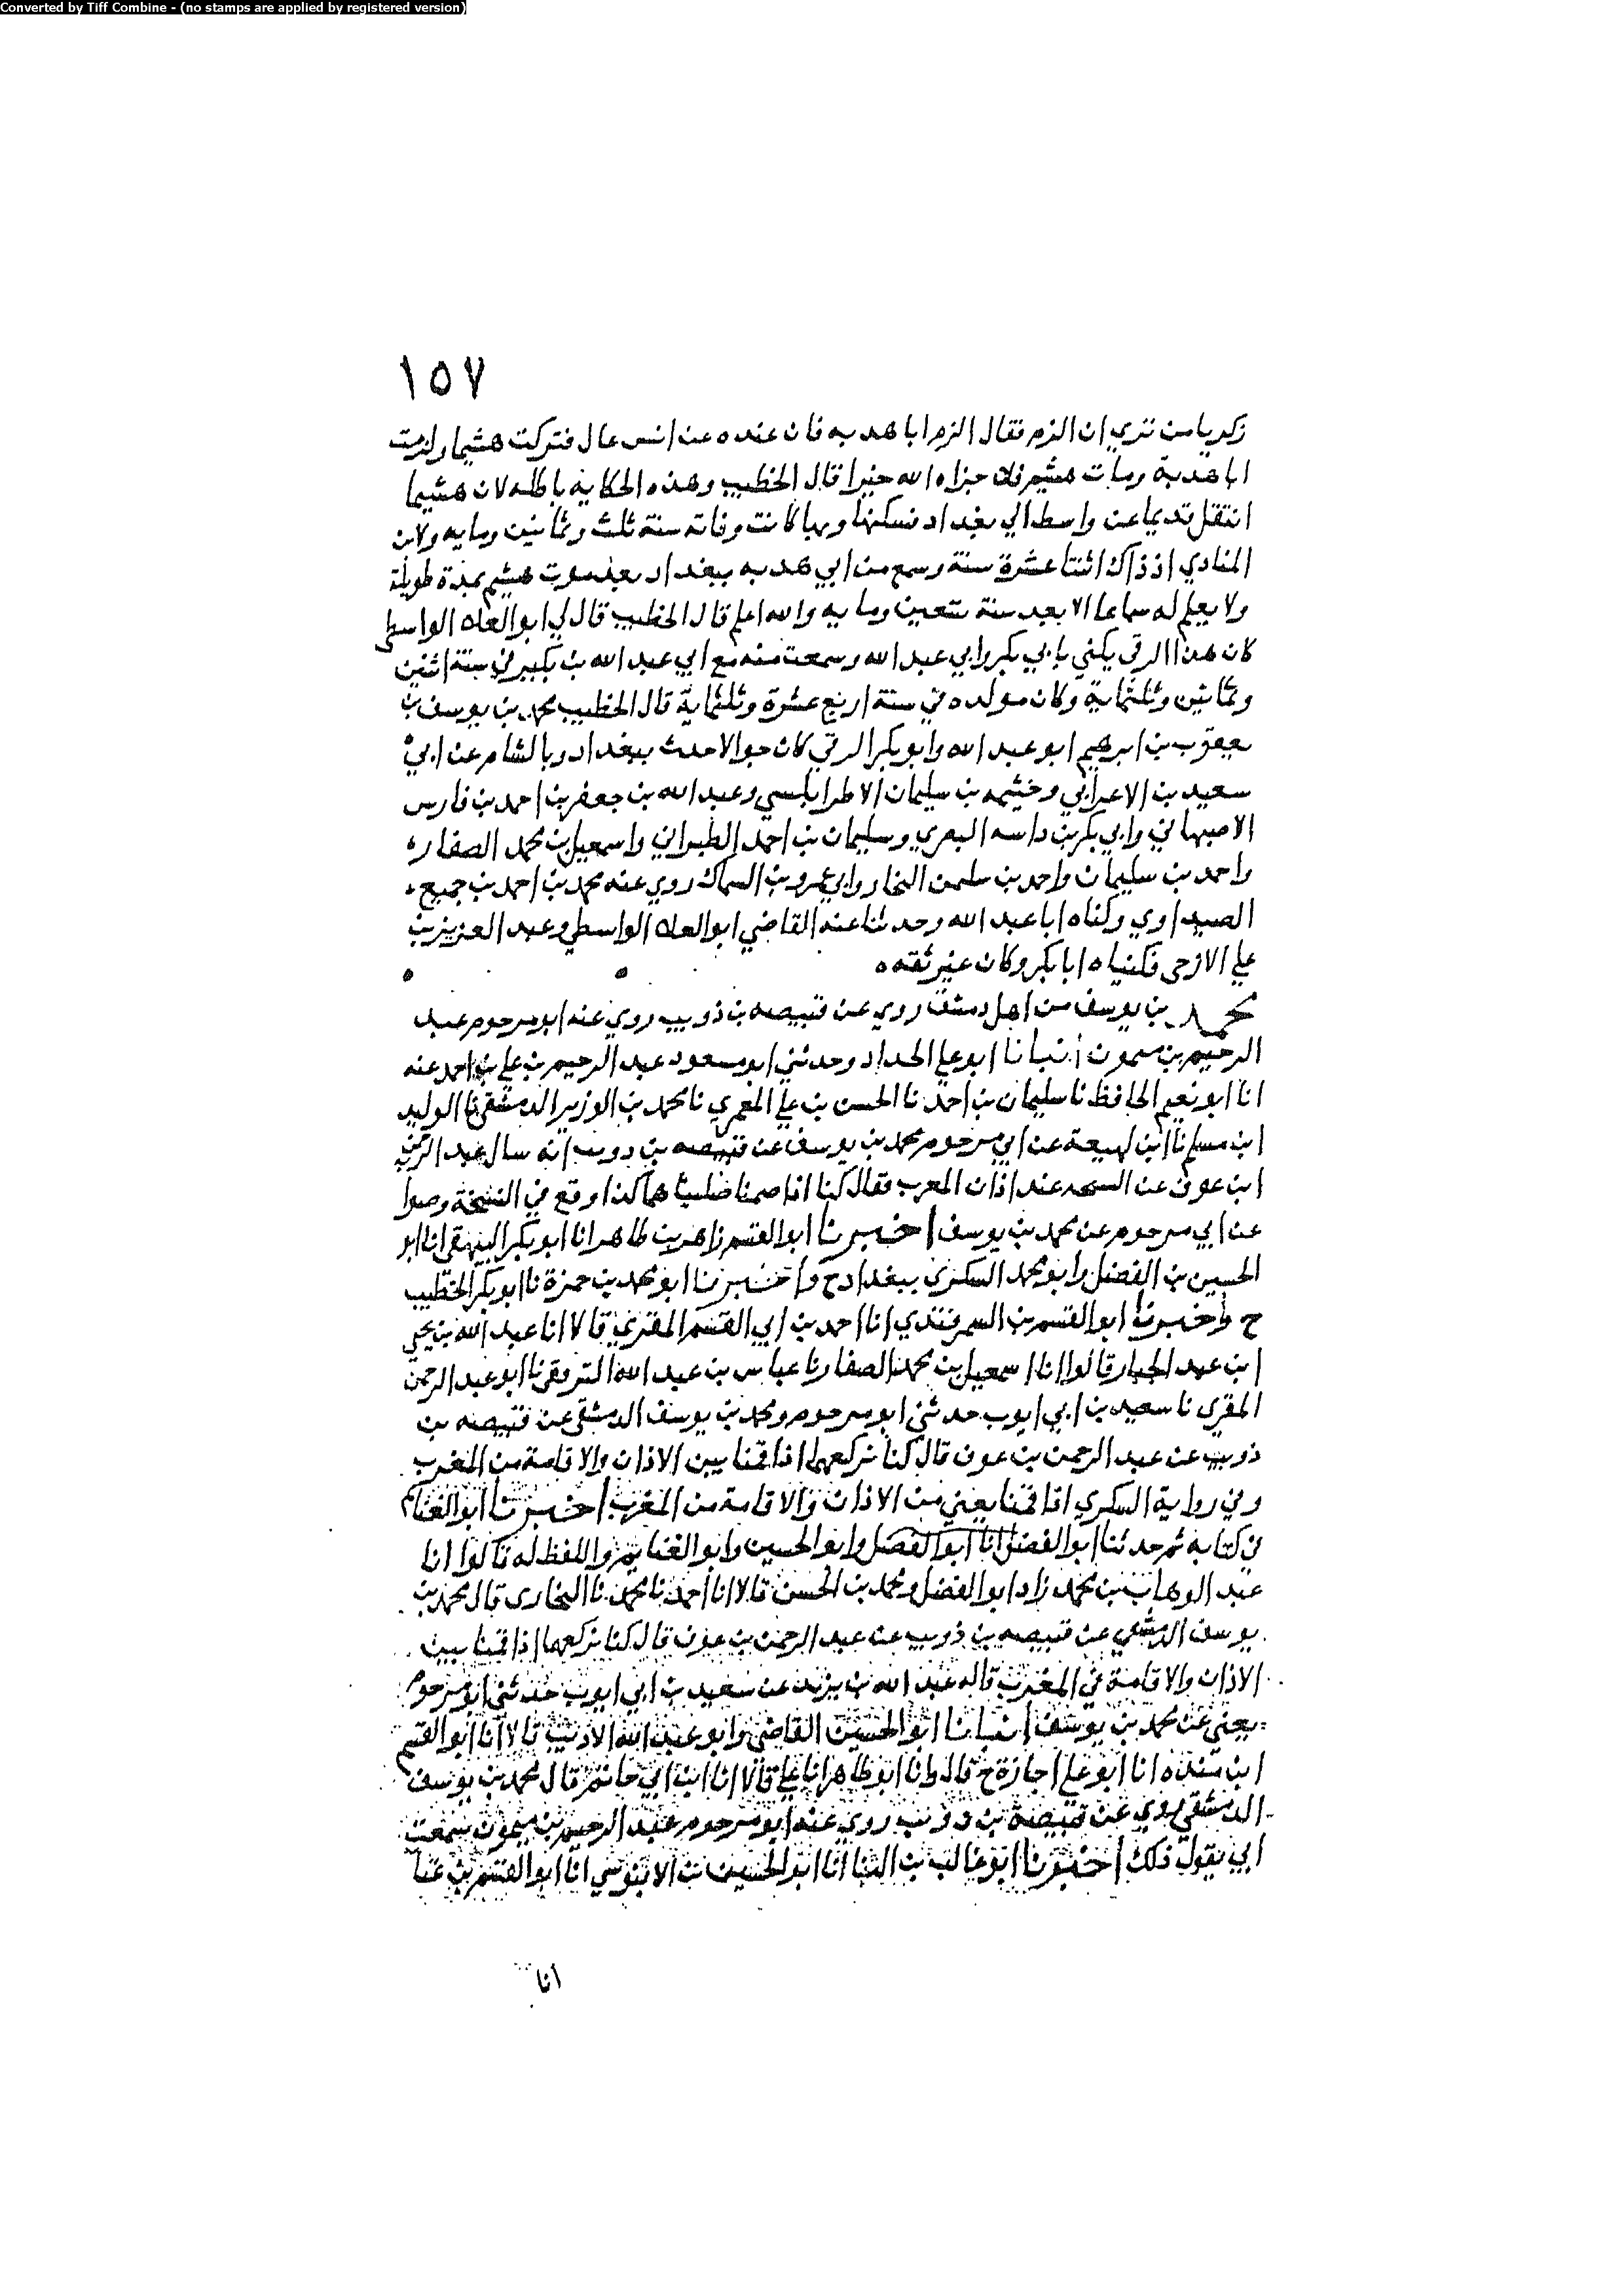 Converted by Tiff Combine - (no stamps are applied by registered version)
١٥٧
زكريا من تري ان الزم فقال الزم ابا هدبه فان عنده عن انس عال فتركت هشيما ولزمت
ابا هدبة ومات هشيم فلا جزاه الله خيرا قال الخطيب وهذه الحكايه باطله لان هشيما
انتقل قديما عن واسط الي بغداد فسكنها وبها كانت وفاته سنة ثلث وثمانين ومايه ولابن
المنادي اذ ذاك اثنتا عشرة سنة وسمع من ابي هدبه ببغداد بعد موت هشيم بمدة طويلة
ولا يعلم له سماعا الا بعد سنة تسعين ومايه والله اعلم قال الخطيب قال لي ابو العلاء الواسطي
كان هذا الرقي يكني بابي بكر وابي عبد الله وسمعت منه مع ابي عبد الله بن بكير في سنة اثنين
وثمانين وثلثماية وكان مولده في سنة اربع عشرة وثلثماية قال الخطيب محمد بن يوسف بن
يعقوب بن ابرهيم ابو عبد الله وابو بكر الرقي كان جوالا حدث ببغداد وبالشام عن ابي
سعيد بن الاعرابي وخيثمه بن سليمان الاطرابلسي وعبد الله بن جعفر بن احمد بن فارس
الاصبهاني وابي بكر بن داسه البصري وسليمان بن احمد الطبراني واسمعيل بن محمد الصفار
واحمد بن سليمان واحمد بن سلمن النجار وابي عمرو بن السماك روي عنه محمد بن احمد بن جميع
الصيداوي وكناه ابا عبد الله وحدثنا عنه القاضي ابو العلاء الواسطي وعبد العزيز بن
علي الازجى فكنياه ابا بكر وكان غير ثقه
محمد بن يوسف من اهل دمشق روي عن قبيصه بن ذويب روي عنه ابو مرحوم عبد
الرحيم بن ميمون انبانا ابو علي الحداد وحدثني ابو مسعود عبد الرحيم بن علي بن احمد عنه
انا ابو نعيم الحافظ نا سليمان بن احمد نا الحسن بن علي المعمري نا محمد بن الوزير الدمشقي نا الوليد
ابن مسلم نا ابن لهيعة عن ابي مرحوم محمد بن يوسف عن قبيصه بن دويب انه سال عبد الرحمن
ابن عوف عن عند اذان المغرب فقال كنا اذا صمنا صليناهما كذا وقع في النسخة وصوابه
عن ابي مرحوم عن محمد بن يوسف اخبرنا ابو القسم زاهر بن طاهر انا ابو بكر البيهقي انا ابو
الحسين بن الفضل وابو محمد السكري ببغداد ح واخبرنا ابو محمد بن حمزة نا ابو بكر الخطيب
ح واخبرنا ابو القسم بن السمرقندي انا احمد بن ابي القسم المقري قالا انا عبد الله بن يحيي
ابن عبد الجبار قالوا انا اسمعيل بن محمد الصفار نا عباس بن عبد الله الترقفي نا ابو عبد الرحمن
المقري نا سعيد بن ابي ايوب حدثني ابو مرحوم ومحمد بن يوسف الدمشقي عن قبيصه بن
ذويب عن عبد الرحمن بن عوف قال كنا نركعهما اذا قمنا بين الاذان والاقامة من المغرب
وفي رواية السكري اذا قمنا يعني من الاذان والاقامة من المغرب اخبرنا ابو الغنائم
في كتابه ثم حدثنا ابو الفضل انا ابو الفضل وابو الحسين وابو الغنايم واللفظ له قالوا انا
عبد الوهاب بن محمد زاد ابو الفضل ومحمد بن الحسن قالا انا احمد نا محمد نا البخاري قال محمد بن
يوسف الدمشقي عن قبيصه بن ذويب عن عبد الرحمن بن عوف قال كنا نركعهما اذا قمنا بين
الاذان والاقامة في المغرب قاله عبد الله بن يزيد عن سعيد بن ابي ايوب حدثني ابو مرحوم
يعني عن محمد بن يوسف انبانا ابو الحسين القاضي وابو عبد الله الاديب قالا انا ابو القسم
ابن منده انا ابو علي اجازة ح قال وانا ابو طاهر انا علي قالا انا ابن ابي حاتم قال محمد بن يوسف
الدمشقي روي عن قبيصة بن دويب روي عنه ابو مرحوم عبد الرحيم بن ميمون سمعت
ابي يقول ذلك اخبرنا ابو غالب بن البنا انا ابو الحسين بن الابنوسي انا ابو القسم بن عتا
انا